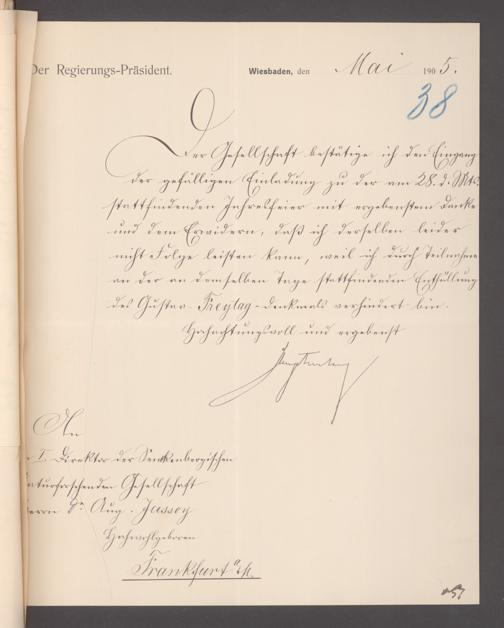 Der Regierungs-Präsident.
Wiesbaden, den Mai 1905.
38
Der Gesellschaft bestätige ich den Eingang
der gefälligen Einladung zu der am 28. d. Mts.
stattfindenden Jahresfeier mit ergebenstem Danke
und dem Erwidern, daß ich derselben leider
nicht Folge leisten kann, weil ich durch Teilnahme
an der an demselben Tage stattfindenden Enthüllung
des Gustav-Freytag-Denkmals verhindert bin.
Hochachtungsvoll und ergebenst
An
I. Direktor der Senckenbergischen
naturforschenden Gesellschaft
Herrn Dr. Aug. Jassoy
Hochwohlgeboren
Frankfurt a/M.